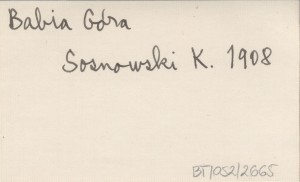 Babia Góra
Sosnowski K. 1908
BT/052/2665